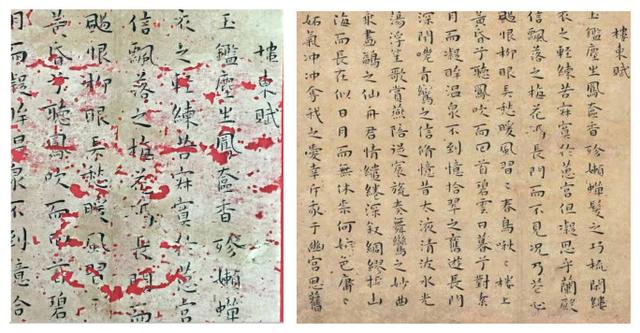 樓東賦
玉鑑塵生鳳奩香殄嬾蟬
衣之輕練苦寂寞於蕙宮
信飄落之梅花隔長門而
颺恨柳眼弄愁暖風習〻
黃昏兮聽鳳吹而回首碧
月而凝眸温泉不到憶拾
樓東賦
玉鑑塵生鳳奩香殄嬾蟬鬢之巧梳閑縷
衣之輕練苦寂寞於蕙宮但凝思乎蘭殿
信飄落之梅花隔長門而不見況乃花心
颺恨柳眼弄愁暖風習〻春鳥啾〻樓上
黃昏兮聽鳳吹而回首碧雲日暮兮對素
月而凝眸温泉不到憶拾翠之舊遊長門
深閉嗟青鸞之信脩憶昔太液清波水光
蕩浮笙歌賞燕陪從宸旒奏舞鸞之妙曲
乘畫鷁之仙舟君情繾綣深叙綢繆誓山
海而長在似日月而無休柰何嫉色庸〻
妬氣冲冲奪我之愛幸斥我于幽宫思舊